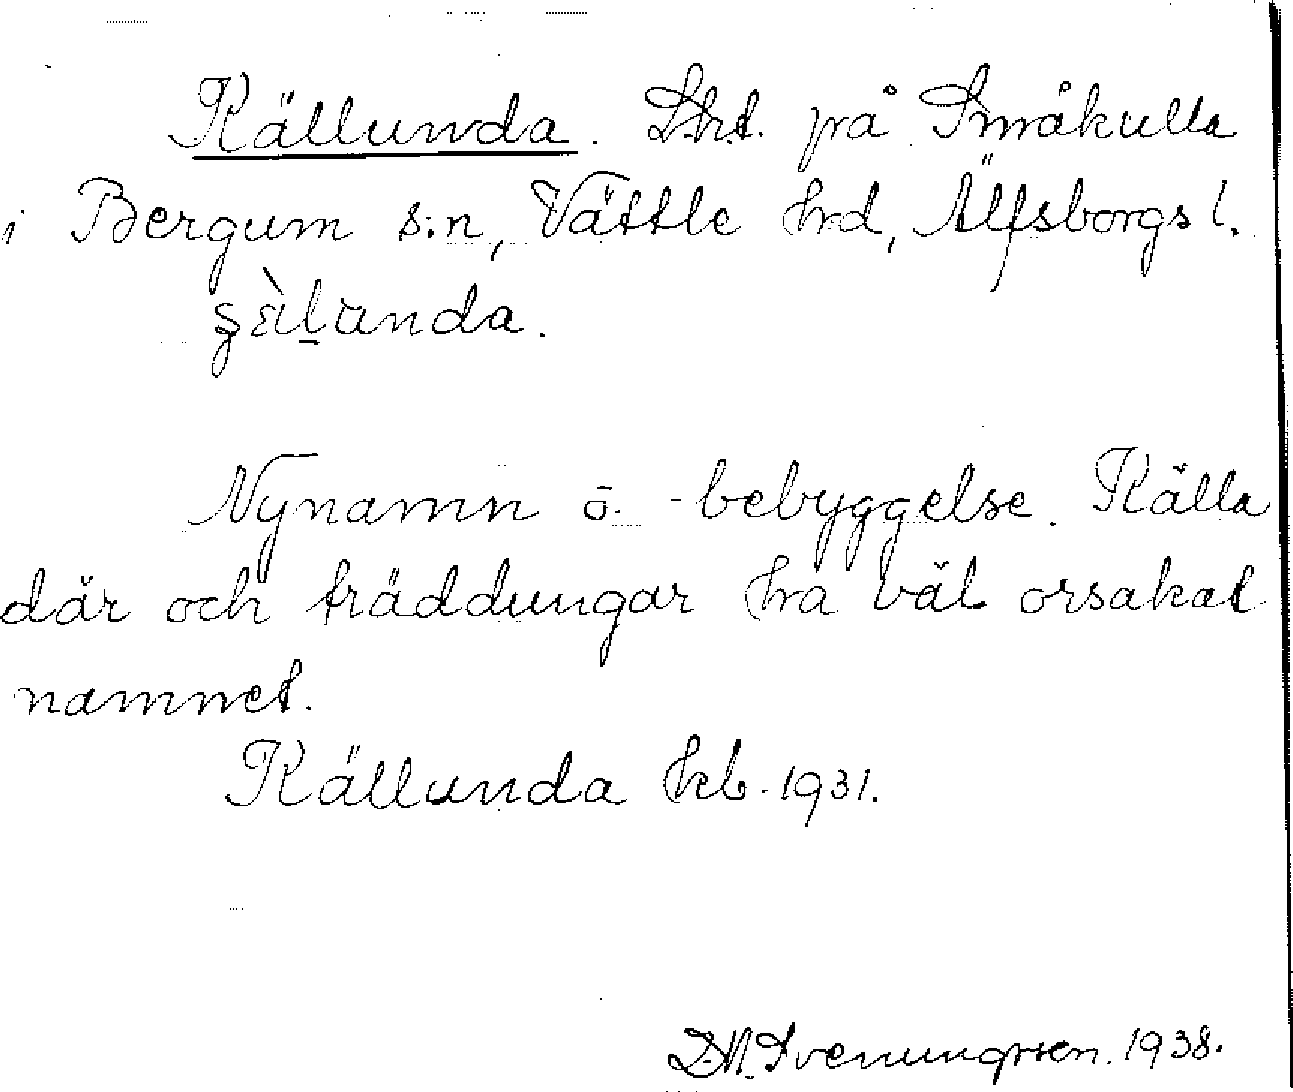 Källunda. Lht. på Småkulla
i Bergum s:n, Vättle hd, Älfsborgs l.
Nynamn o. -bebyggelse. Källa
där och träddungar ha väl orsakat
namnet.
Källunda hfl. 1931.
D.M. Svenungsson. 1938.